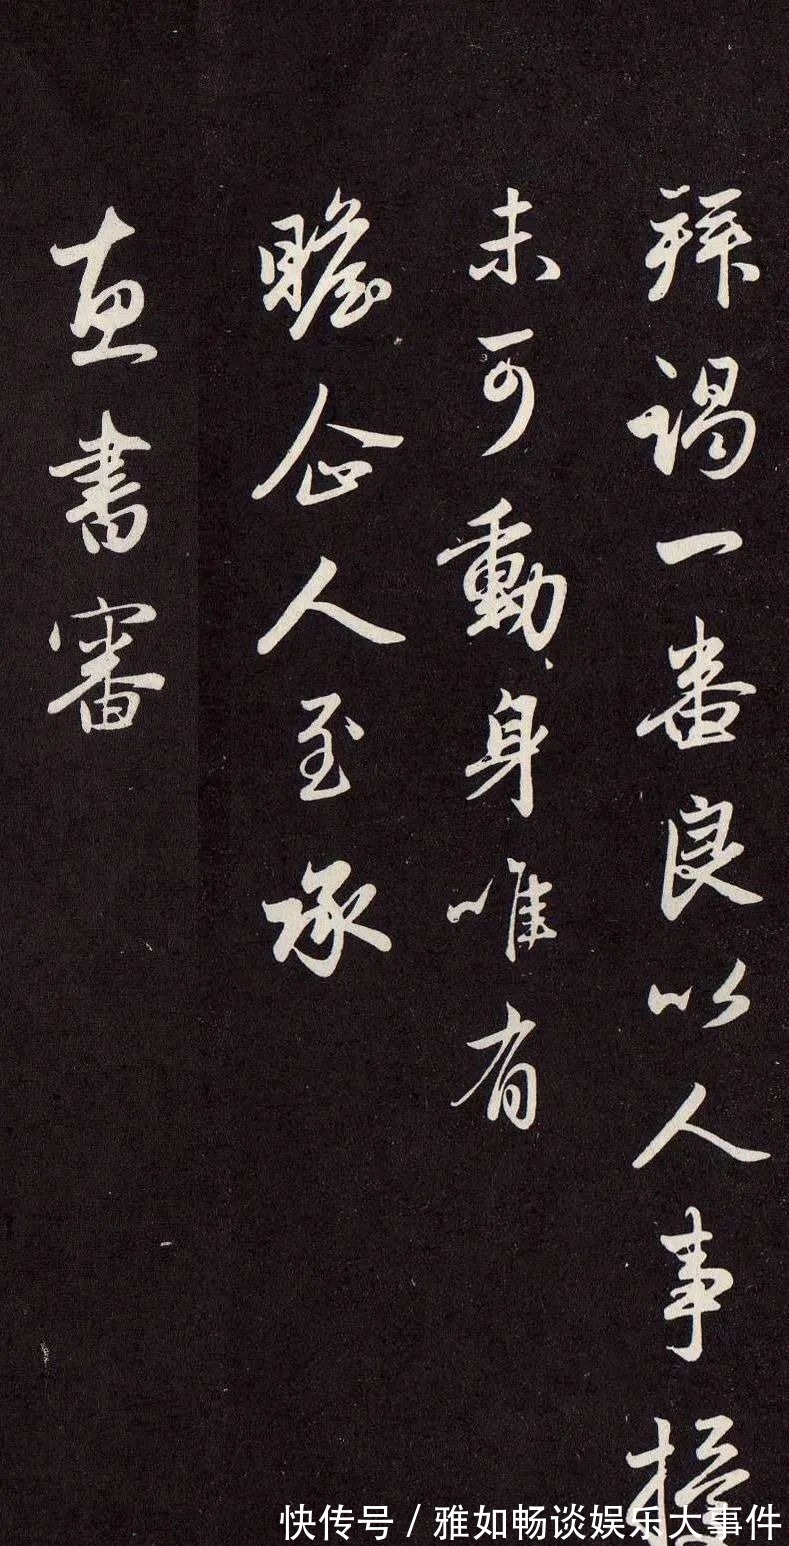 拜謁一番良以人事
未可動身唯有
瞻企人至承
惠書審
快传号 / 雅如畅谈娱乐大事件